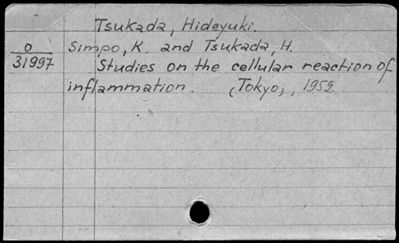 Tsukada, Hideyuki.
O Simpo, K. and Tsukada, H.
31997 Studies on the cellular reaction of
inflammation. (Tokyo), 1952